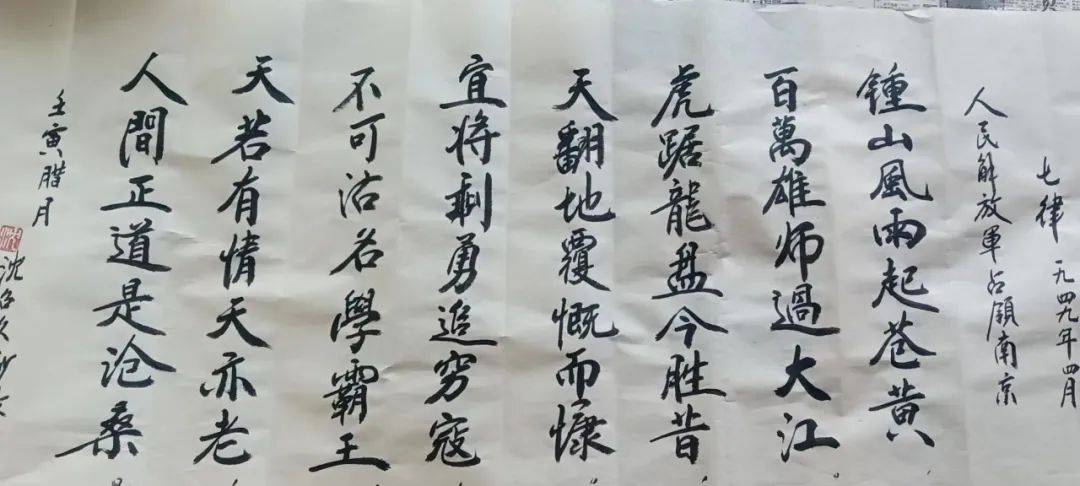 七律 一九四九年四月
人民解放軍占領南京
鍾山風雨起苍黄，
百萬雄师過大江。
虎踞龍盘今胜昔，
天翻地覆慨而慷。
宜将剩勇追穷寇，
不可沽名學霸王。
天若有情天亦老，
人間正道是沧桑。
壬寅腊月
沈